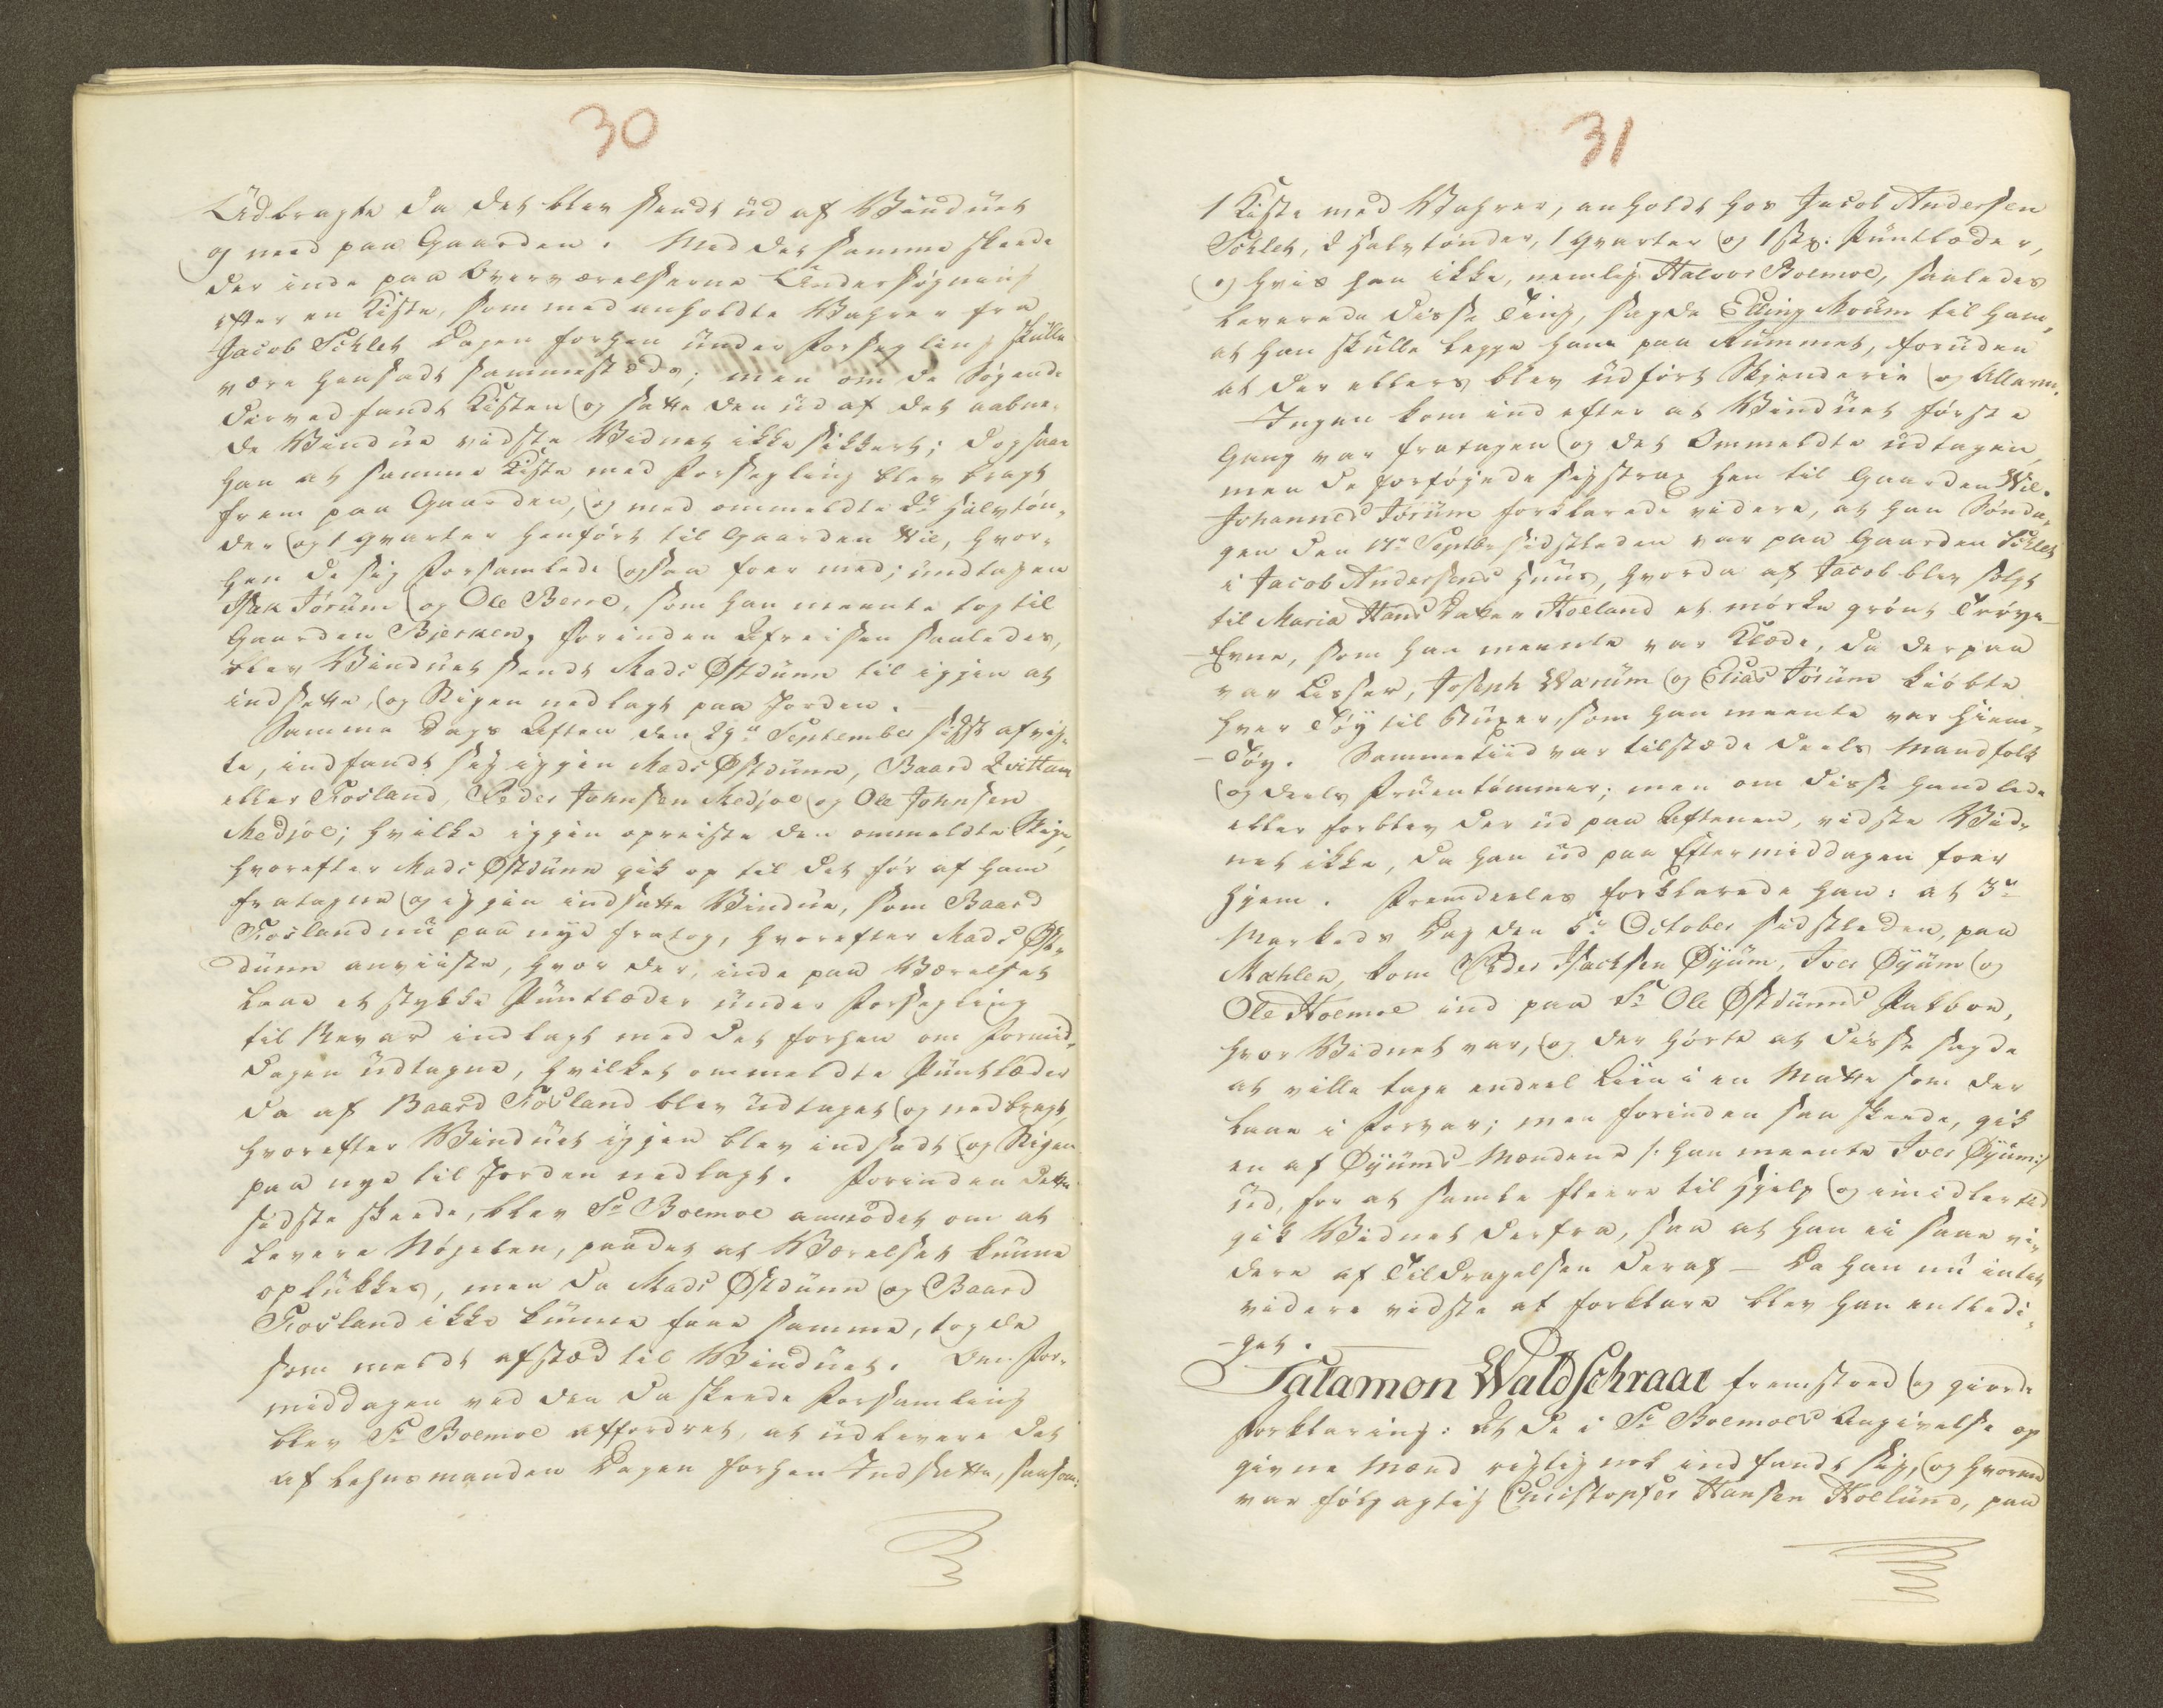 30
Udbragte da det blev sendt üd af Vindüet
og need paa Gaarden. Med det samme skeede
der inde paa Overværelserne Undersøgning
efter en Kiste, som med anholdte Vahrer fra
Jacob Schlet Dagen forhen ünder Forsegling skülle
være hensadt sammestæds; men om de Søgende
derved fandt Kisten og satte den üd af det aabne,
de Vindüe vidste Vidnet ikke sikkert; dog saae
han at samme Kiste med Forsegling blev bragt
frem paa Gaarden, og med ommeldte 2de halvtøn,
der og 1 qvarter henført til Gaarden Wie, hvor,
hen de sig forsamlede ogsaa foer med; ündtagen
Isak Jørüm og Ole Berre, som han meente tog til
Gaarden Bjerken, forinden Afreisen saaledes,
blev Vindüet sendt Mads Østdünn til igjen at
indsætte, og Stigen nedlagt paa Jorden.
Samme Dags Aften den 29de September sidst afvig,
te, indfandt sig igjen Mads Østdünn, Baard Qvittam
eller Fosland, Peder Johnsen Medjoe og Ole Johnsen
Medjoe; hvilke igjen opreiste den ommeldte Stige,
hvorefter Mads Østdünn gik op til det før af ham
fratagne og igjen indsatte Vindüe, som Baard
Fosland nü paa nye fratog, hvorefter Mads Øst,
dünn anviiste, hvor der, inde paa Værelset
laae et stykke Püntlæder ünder Forsegling
til Bevar indlagt med det forhen om Formid,
dagen üdtagne, hvilket ommeldte Püntlæder
da af Baard Fosland blev üdtaget og nedbragt,
hvorefter Vindüet igjen blev indsadt og Stigen
paa nye til Jorden nedlagt. Forinden dette
sidste skeede, blev Sr Boemoe anmodet om at
levere Nøgelen, paadet at Værelset künne
oplükkes, men da Mads Østdünn og Baard
Fosland ikke künne faae samme, tog de
som meldt afsted til Vindüet. Om For,
middagen ved den da skeede Forsamling
blev Sr Boemoe affordret, at üdlevere det
af Lehnsmanden Dagen forhen Indsatte, saasom:
31
1 Kiste med Vahrer, anholdt hos Jacob Andersen
Schlet, 2 halvtønder, 1 qvarter og 1 stk: Püntlæder,
og hvis han ikke, nemlig Halvor Boemoe, saaledes
leverede disse Ting, sagde Elling Moüm til ham,
at han skülle legge ham paa Rummet, forüden
at der ellers blev üdført Skjenderie og Allarm.
Ingen kom ind efter at Vindüet første
Gang var fratagen og det Ommeldte üdtagen,
men de forføjede sig strax hen til Gaarden Wie.
Johannes Jørüm forklarede videre, at han Sønda,
gen den 17de Septbr sidstleden var paa Gaarden Schlet
i Jacob Andersens Hüüs, hvorda af Jacob blev solgt
til Maria Hans Datter Hoeland et mørke grønt Trøye
-Evne, som han meente var Klæde, da derpaa
var Lisser, Joseph Warüm og Elias Jørüm kiøbte
hver Tøy til Büxer, som han meente var Hiem,
-Tøy. Sammetiid var tilstæde deels Mandfolk
og deels Früentømmer; men om disse handlede
eller forblev der üd paa Aftenen, vidste Vid,
net ikke, da han üd paa Eftermiddagen foer
hjem. Fremdeeles forklarede han: at 3de
Markeds Dag den 5te October sidstleden, paa
Mæhlen, kom Peder Isachsen Øyüm, Iver Øyüm og
Ole Hoemoe ind paa Sr Ole Østdünns Pakboe,
hvor Vidnet var, og der hørte at disse sagde
at ville tage endeel Liin i en Matte som der
laae i Forvar; men forinden saa skeede, gik
en af Øyüms-Mændene /: han meente Iver Øyüm :/
üd, for at samle fleere til Hjelp og imidlertid
gik Vidnet derfra, saa at han ei saae vi,
dere af Tildragelsen deraf - Da han nü intet
videre vidste at forklare blev han entledi,
-get.
Salamon Waldschraae fremstoed og giorde
Forklaring: At de i Sr Boemoes Angivelse op
givne Mænd rigtig nok indfandt sig, og hvorved
var følgagtig Christopfer Hansen Hoelünd, paa